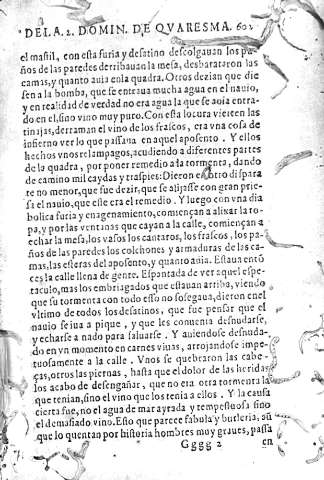 DE LA. 2. DOMIN. DE QVARESMA. 602
el mastil, con esta furia y desatino descolgauan los pa-
ños de las paredes derribauan la mesa, desbarataron las
camas, y quanto auia en la quadra. Otros dezian que die
sen a la bomba, que se entraua mucha agua en el nauio,
y en realidad de verdad no era agua la que se auia entra-
do en el, sino vino muy puro. Con esta locura vierten las
tinajas, derraman el vino de los frascos, era vna cosa de
infierno ver lo que passaua en aquel aposento. Y ellos
hechos vnos relampagos, acudiendo a diferentes partes
de la quadra, por poner remedio a la tormenta, dando
de camino mil caydas y traspies: Dieron en otro dispara
te no menor, que fue dezir, que se alijasse con gran prie-
sa el nauio, que este era el remedio. Y luego con vna dia
bolica furia y enagenamiento, comiençan a alixar la to-
pa, y por las ventanas que cayan a la calle, comiençan a
echar la mesa, los vasos los cantaros, los frascos, los pa-
ños de las paredes los colchones y armaduras de las ca-
mas, las esteras del aposento, y quanto auia. Estaua entõ
ces la calle llena de gente. Espantada de ver aquel espe-
taculo, mas los embriagados que estauan arriba, viendo
que su tormenta con todo esso no sosegaua, dieron en el
vltimo de todos los desatinos, que fue pensar que el
nauio se iua a pique, y que les conuenia desnudarse,
y echarse a nado para saluarse. Y auiendose desnuda-
do en vn momento en carnes viuas, arrojandose impe-
tuosamente a la calle. Vnos se quebraron las cabe-
ças, otros las piernas, hasta que el dolor de las heridas
los acabo de desengañar, que no era otra tormenta la
que tenian, sino el vino que los tenia a ellos. Y la causa
cierta fue, no el agua de mar ayrada y tempestuosa sino
el demasiado vino. Esto que parece fabula y burleria, aũ
que lo quentan por historia hombres muy graues, passa
Gggg 2 en